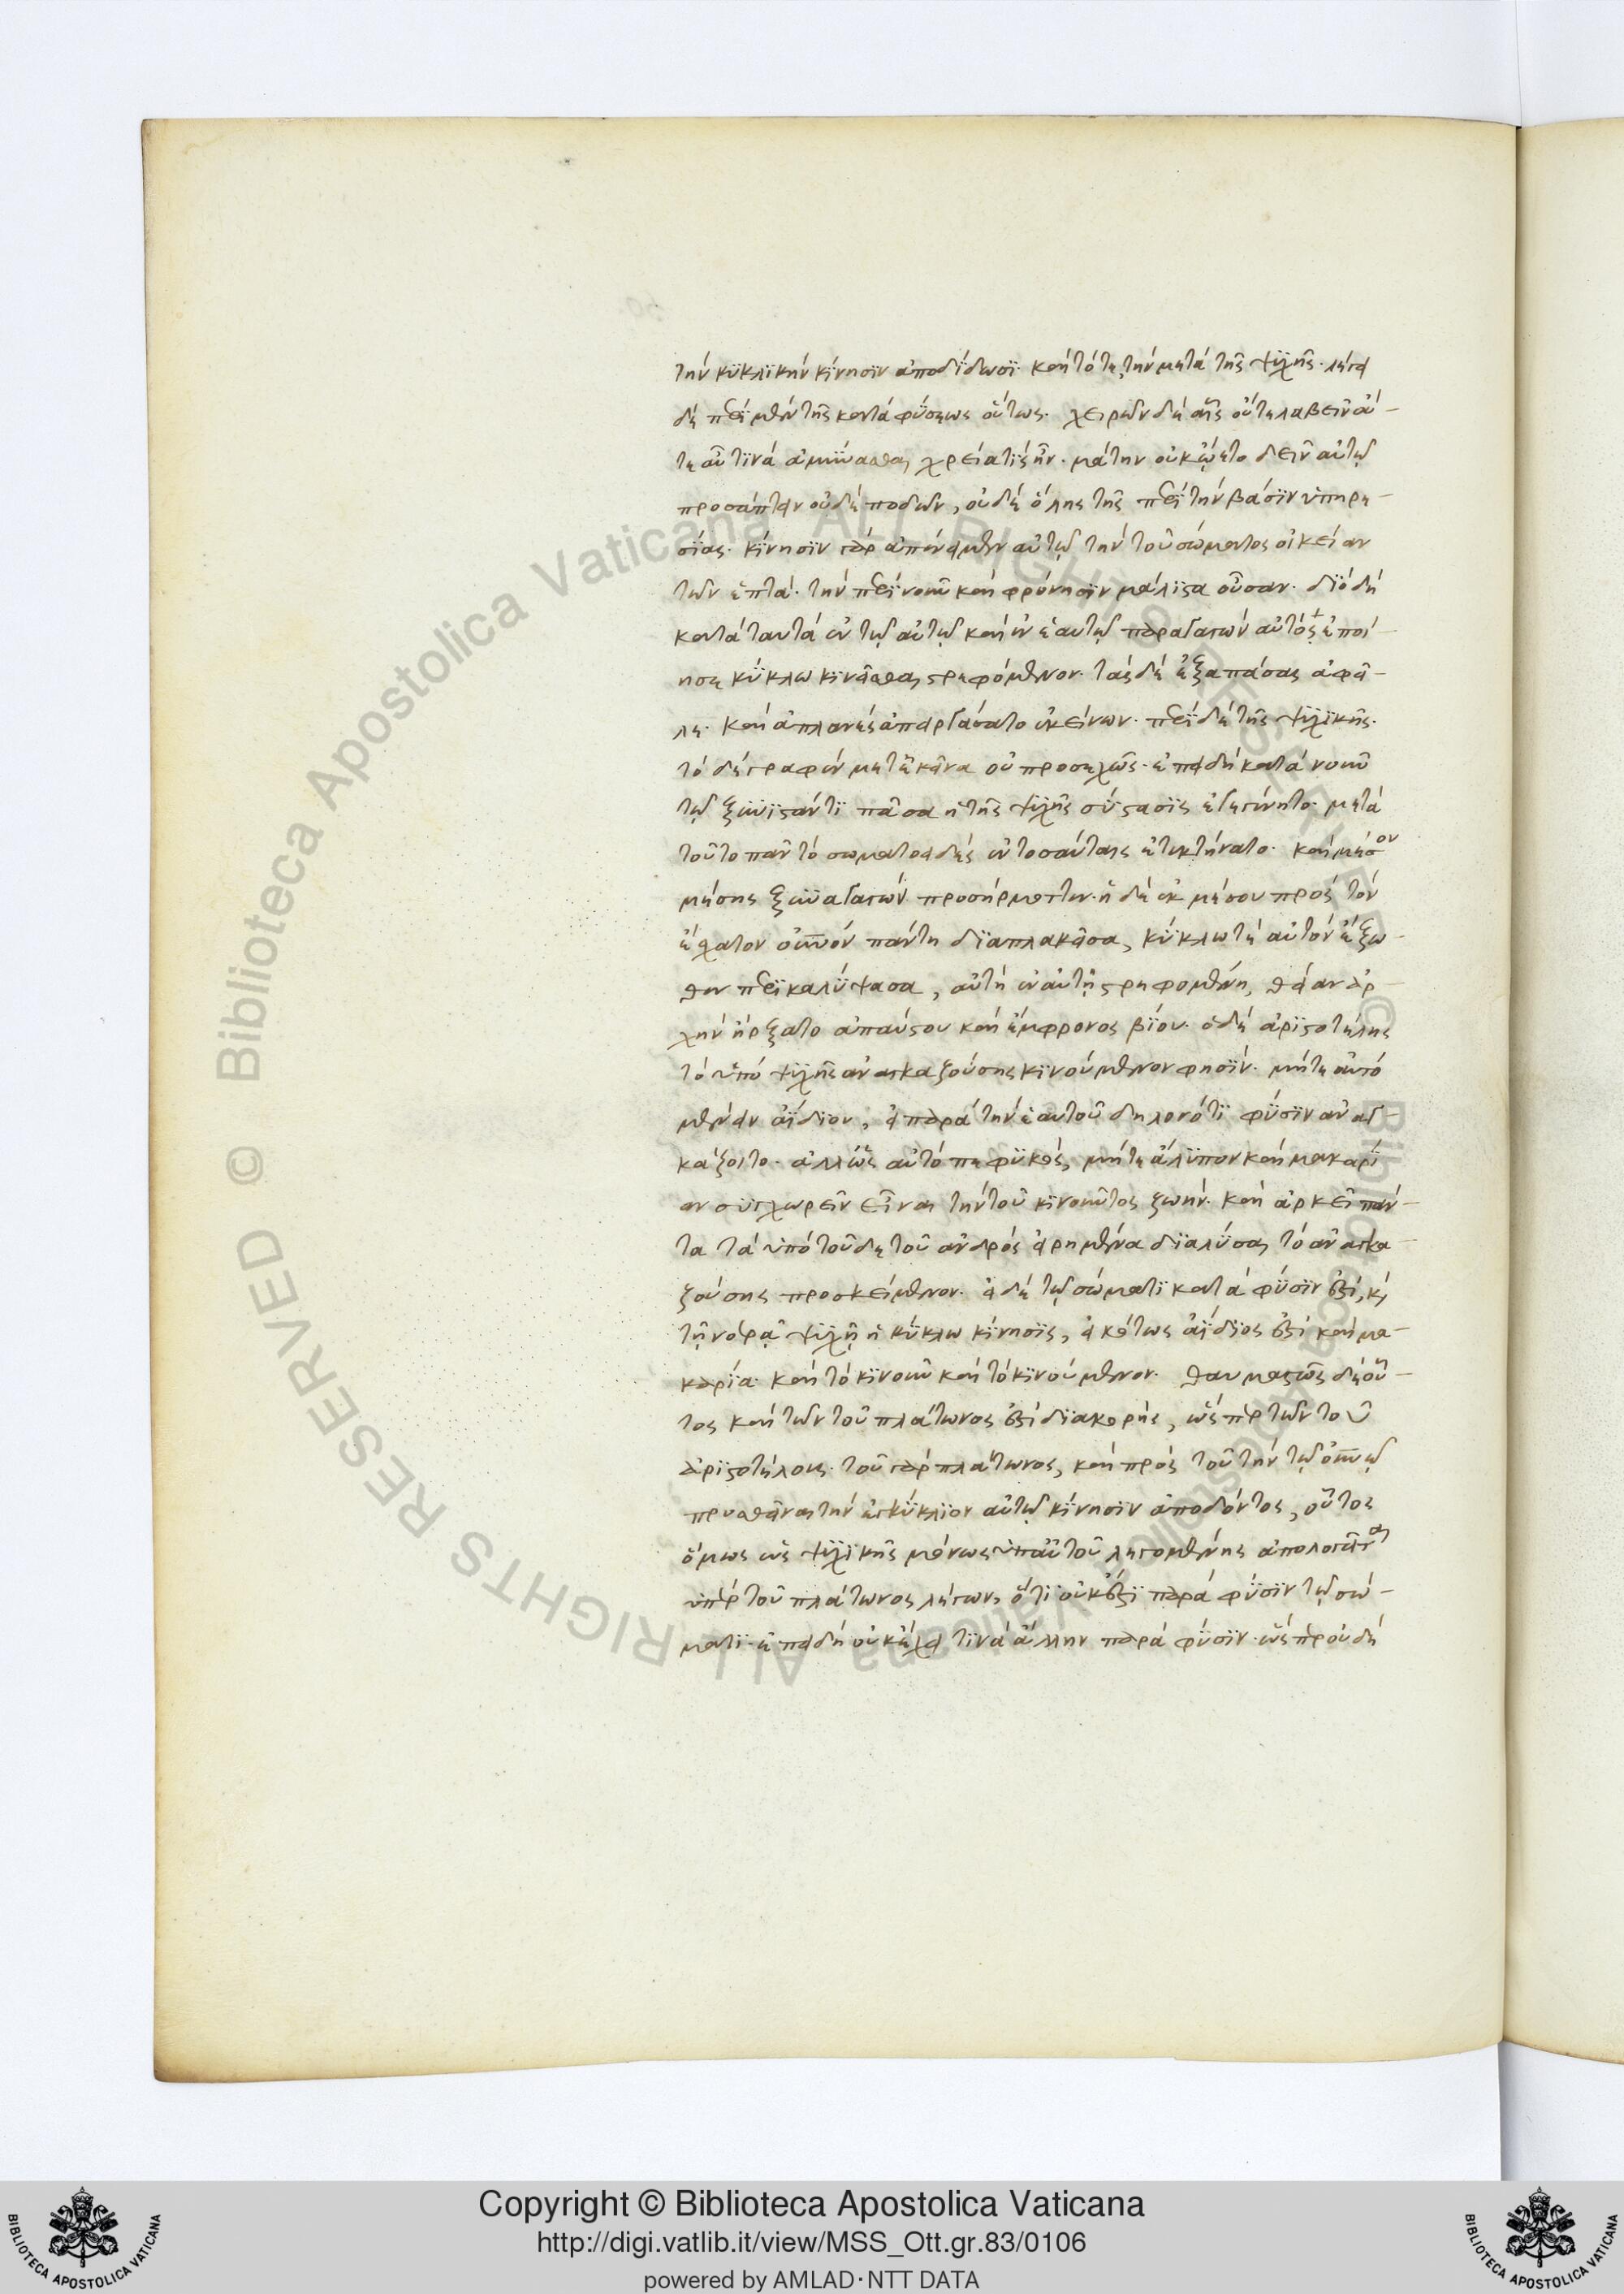 τὴν κϋκλϊκὴν κίνησϊν ἀποδίδωσϊ· καὶ τότε, τὴν μετὰ τῆς ψϋχῆς· λέγει
δὲ περὶ μὲν τῆς κατὰ φύσεως οὕτως· χειρῶν δὲ αἷς οὔτε λαβεῖν οὔ-
τε αὖ τϊνὰ ἀμύνασθαι χρεία τὶς ἦν· μάτην οὐκ ᾤετο δεῖν αὐτῷ
προσάπτειν οὐδὲ ποδῶν, οὐδὲ ὅλης τῆς περὶ τὴν βάσϊν ὑπηρε-
σίας· κίνησϊν γὰρ ἀπένειμεν αὐτῷ τὴν τοῦ σώματος οἰκείαν
τῶν ἑπτά· τὴν περὶ νοῦν καὶ φρόνησϊν μάλϊστα οὖσαν· διὸ δὴ
κατὰ ταυτὰ ἐν τῷ αὐτῷ καὶ ἐν ἑαυτῷ παραγαγὼν αὐτὸς, ἐποί-
ησε κύκλω κϊνεῖσθαι στρεφόμενον· τὰς δὲ ἓξ ἁπάσας ἀφεῖ-
λε· καὶ ἀπλανὲς ἀπειργάσατο ἐκείνων· περὶ δὲ τῆς ψϋχϊκῆς·
τὸ δὲ γραφὲν μετ' ἐκεῖνα οὐ προσεχῶς· ἐπειδὴ κατὰ νοῦν
τῷ ξυνϊστάντϊ πᾶσα ἡ τῆς ψϋχῆς σύστασϊς ἐγεγένητο· μετὰ
τοῦτο πᾶν τὸ σωματοειδὲς ἐντὸς αὐτῆς ἐτεκτήνατο· καὶ μέσον
μέσης ξυναγαγὼν προσήρμοττεν· ἡ δὲ ἐκ μέσου πρὸς τὸν
ἔσχατον οὐρανὸν πάντη δϊαπλακεῖσα, κύκλω τὲ αὐτὸν ἔξω-
θεν περϊκαλύψασα, αὐτὴ ἐν αὐτῇ στρεφομένη, θείαν ἀρ-
χὴν ἤρξατο ἀπαύστου καὶ ἔμφρονος βίου· ὁ δὲ ἀρϊστοτέλης
τὸ ὑπὸ ψϋχῆς ἀναγκαζούσης κϊνούμενον φησϊν· μήτε αὐτὸ
μένειν ἀΐδϊον, εἰ παρὰ τὴν ἑαυτοῦ δηλονότϊ φύσϊν ἀναγ-
κάζοιτο· ἄλλως αὐτὸ πεφϋκὸς, μήτε ἄλϋπον καὶ μακαρί-
αν συγχωρεῖν εἶναι τὴν τοῦ κϊνοῦντος ζωήν· καὶ ἀρκεῖ πάν-
τα τὰ ὑπὸ τοῦδε τοῦ ἀνδρὸς εἰρημένα δϊαλῦσαι τὸ ἀναγκα-
ζούσης προσκείμενον· εἰ δὲ τῷ σώματϊ κατὰ φύσϊν ἐστὶ, καὶ
τῇ νοερᾷ ψϋχῇ ἡ κύκλω κίνησϊς, εἰκότως ἀΐδϊος ἐστὶ καὶ μα-
καρία· καὶ τὸ κϊνοῦν καὶ τὸ κϊνούμενον· θαυμαστῶς δὲ οὗ-
τος καὶ τῶν τοῦ πλάτωνος ἐστὶ δϊακορὴς, ὥσπερ τῶν τοῦ
ἀρϊστοτέλους· τοῦ γὰρ πλάτωνος, καὶ πρὸς τοῦ τὴν τῷ οὐρανῷ
προσθεῖναι τὴν ἐγκύκλϊον αὐτῷ κίνησϊν ἀποδόντος, οὗτος
ὅμως ὡς ψϋχϊκῆς μόνως ὑπ' αὐτοῦ λεγομένης ἀπολογεῖται
ὑπὲρ τοῦ πλάτωνος λέγων, ὅτϊ οὐκ ἔστϊ παρὰ φύσϊν τῷ σώ-
ματϊ· ἐπειδὴ οὐκ ἔχει τϊνὰ ἄλλην παρὰ φύσϊν· ὥσπερ οὐδὲ
Copyright © Biblioteca Apostolica Vaticana
http://digi.vatlib.it/view/MSS_Ott.gr.83/0106
powered by AMLAD·NTT DATA
BIBLIOTECA APOSTOLICA VATICANA
BIBLIOTECA APOSTOLICA VATICANA
© Biblioteca Apostolica Vaticana ALL RIGHTS RESERVED